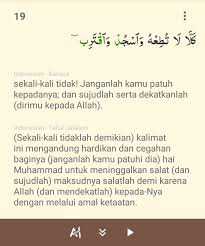 19
كَلَّا لَا تُطِعْهُ وَاسْجُدْ وَاقْتَرِب ۩
Indonesian - Bahasa
sekali-kali tidak! Janganlah kamu patuh
kepadanya; dan sujudlah serta dekatkanlah
(dirimu kepada Allah).
Indonesian - Tafsir Jalalayn
(Sekali-kali tidaklah demikian) kalimat
ini mengandung hardikan dan cegahan
baginya (janganlah kamu patuhi dia) hai
Muhammad untuk meninggalkan salat (dan
sujudlah) maksudnya salatlah demi karena
Allah (dan mendekatlah) kepada-Nya
dengan melalui amal ketaatan.